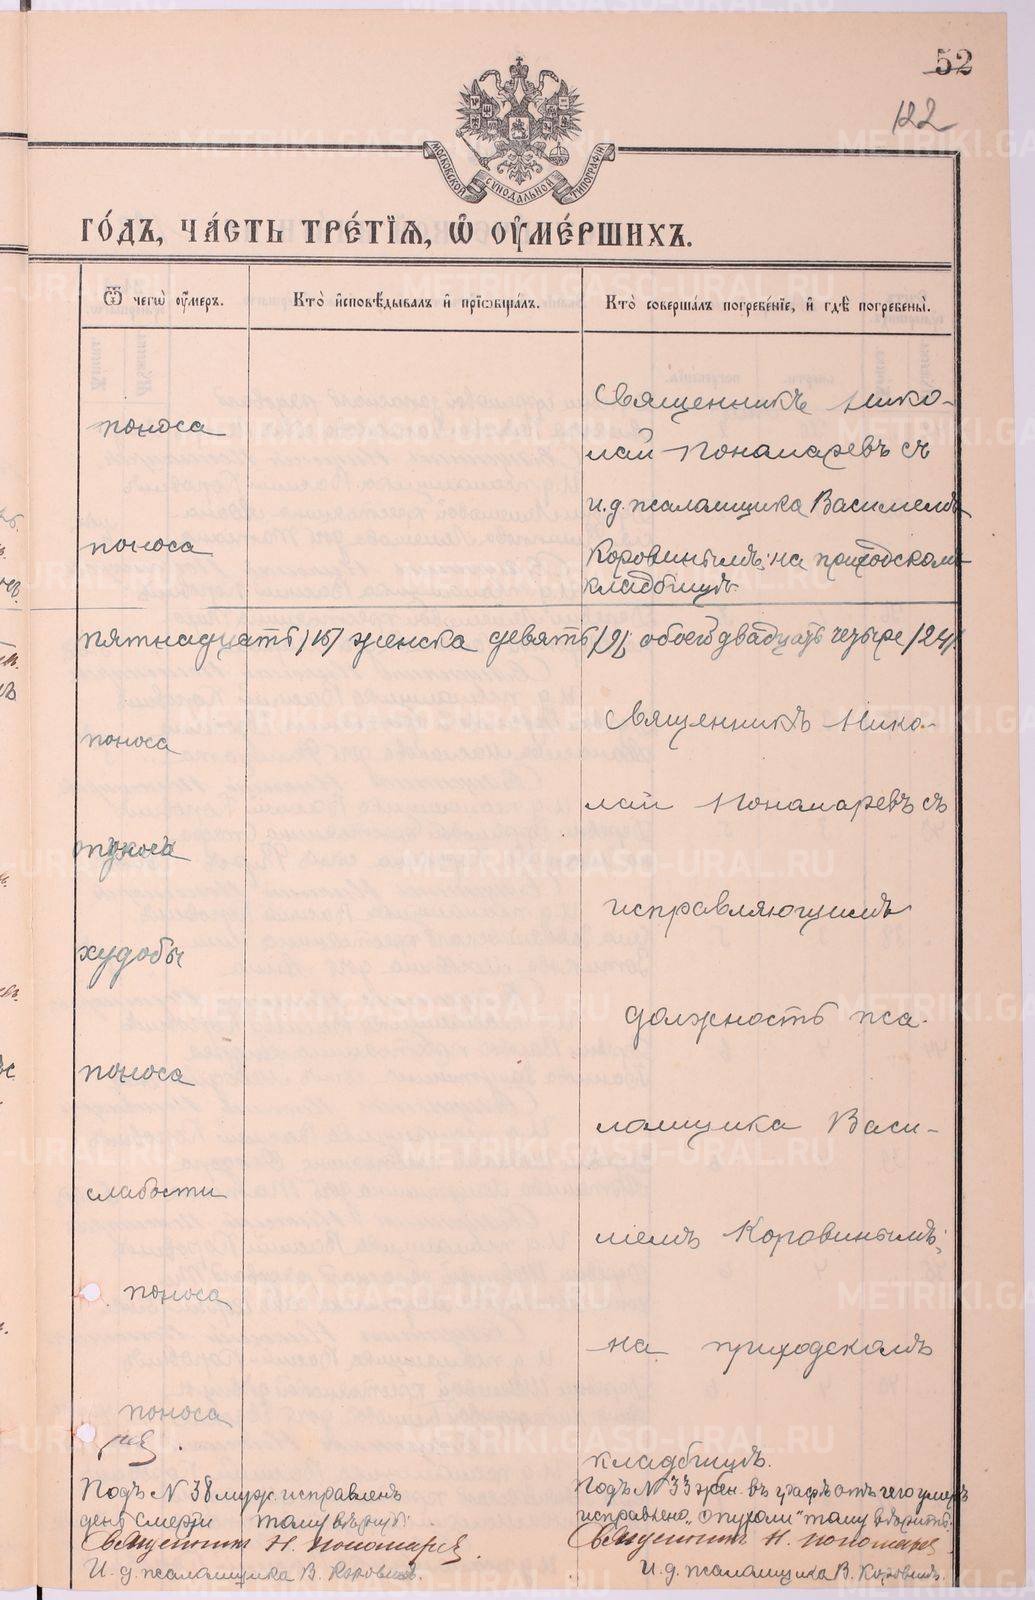 52
122
МОСКОВСКОЙ СѴНОДАЛЬНОЙ ТИПОГРАФІИ
ГО́ДЪ, ЧА́СТЬ ТРЕ́ТІѦ, Ѡ҆ ОУ҆МЕ́РШИХЪ.
Ѿ чегѡ̀ оу҆́меръ.
Кто̀ и҆сповѣ́дывалъ и҆ прїѡбща́лъ.
Кто̀ соверша́лъ погребе́нїе, и҆ гдѣ̀ погребены̀.
поноса
поноса
Священникъ Нико-
лай Пономаревъ съ
и.д. псаломщика Василіемъ
Коровинымъ; на приходскомъ
кладбищѣ.
пятнадцать /15/ женска девять /9/; обоего двадцать четыре /24/.
поноса
худобы
поноса
слабости
поноса
поноса
Священникъ Нико-
лай Пономаревъ съ
исправляющимъ
должность пса-
ломщика Васи-
ліемъ Коровинымъ;
на приходскомъ
кладбищѣ.
Подъ N 38 муж. исправленъ
день смерти тому вѣрить.
Священникъ Н. Пономаревъ
И. д. псаломщика В. Коровинъ.
Подъ N 33 жен. въ графѣ отъ чего умеръ
исправлено „опухоли" тому вѣрить.
Священникъ Н. Пономаревъ
И. д. псаломщика В. Коровинъ.
METRIKI.GASO-URAL.RU